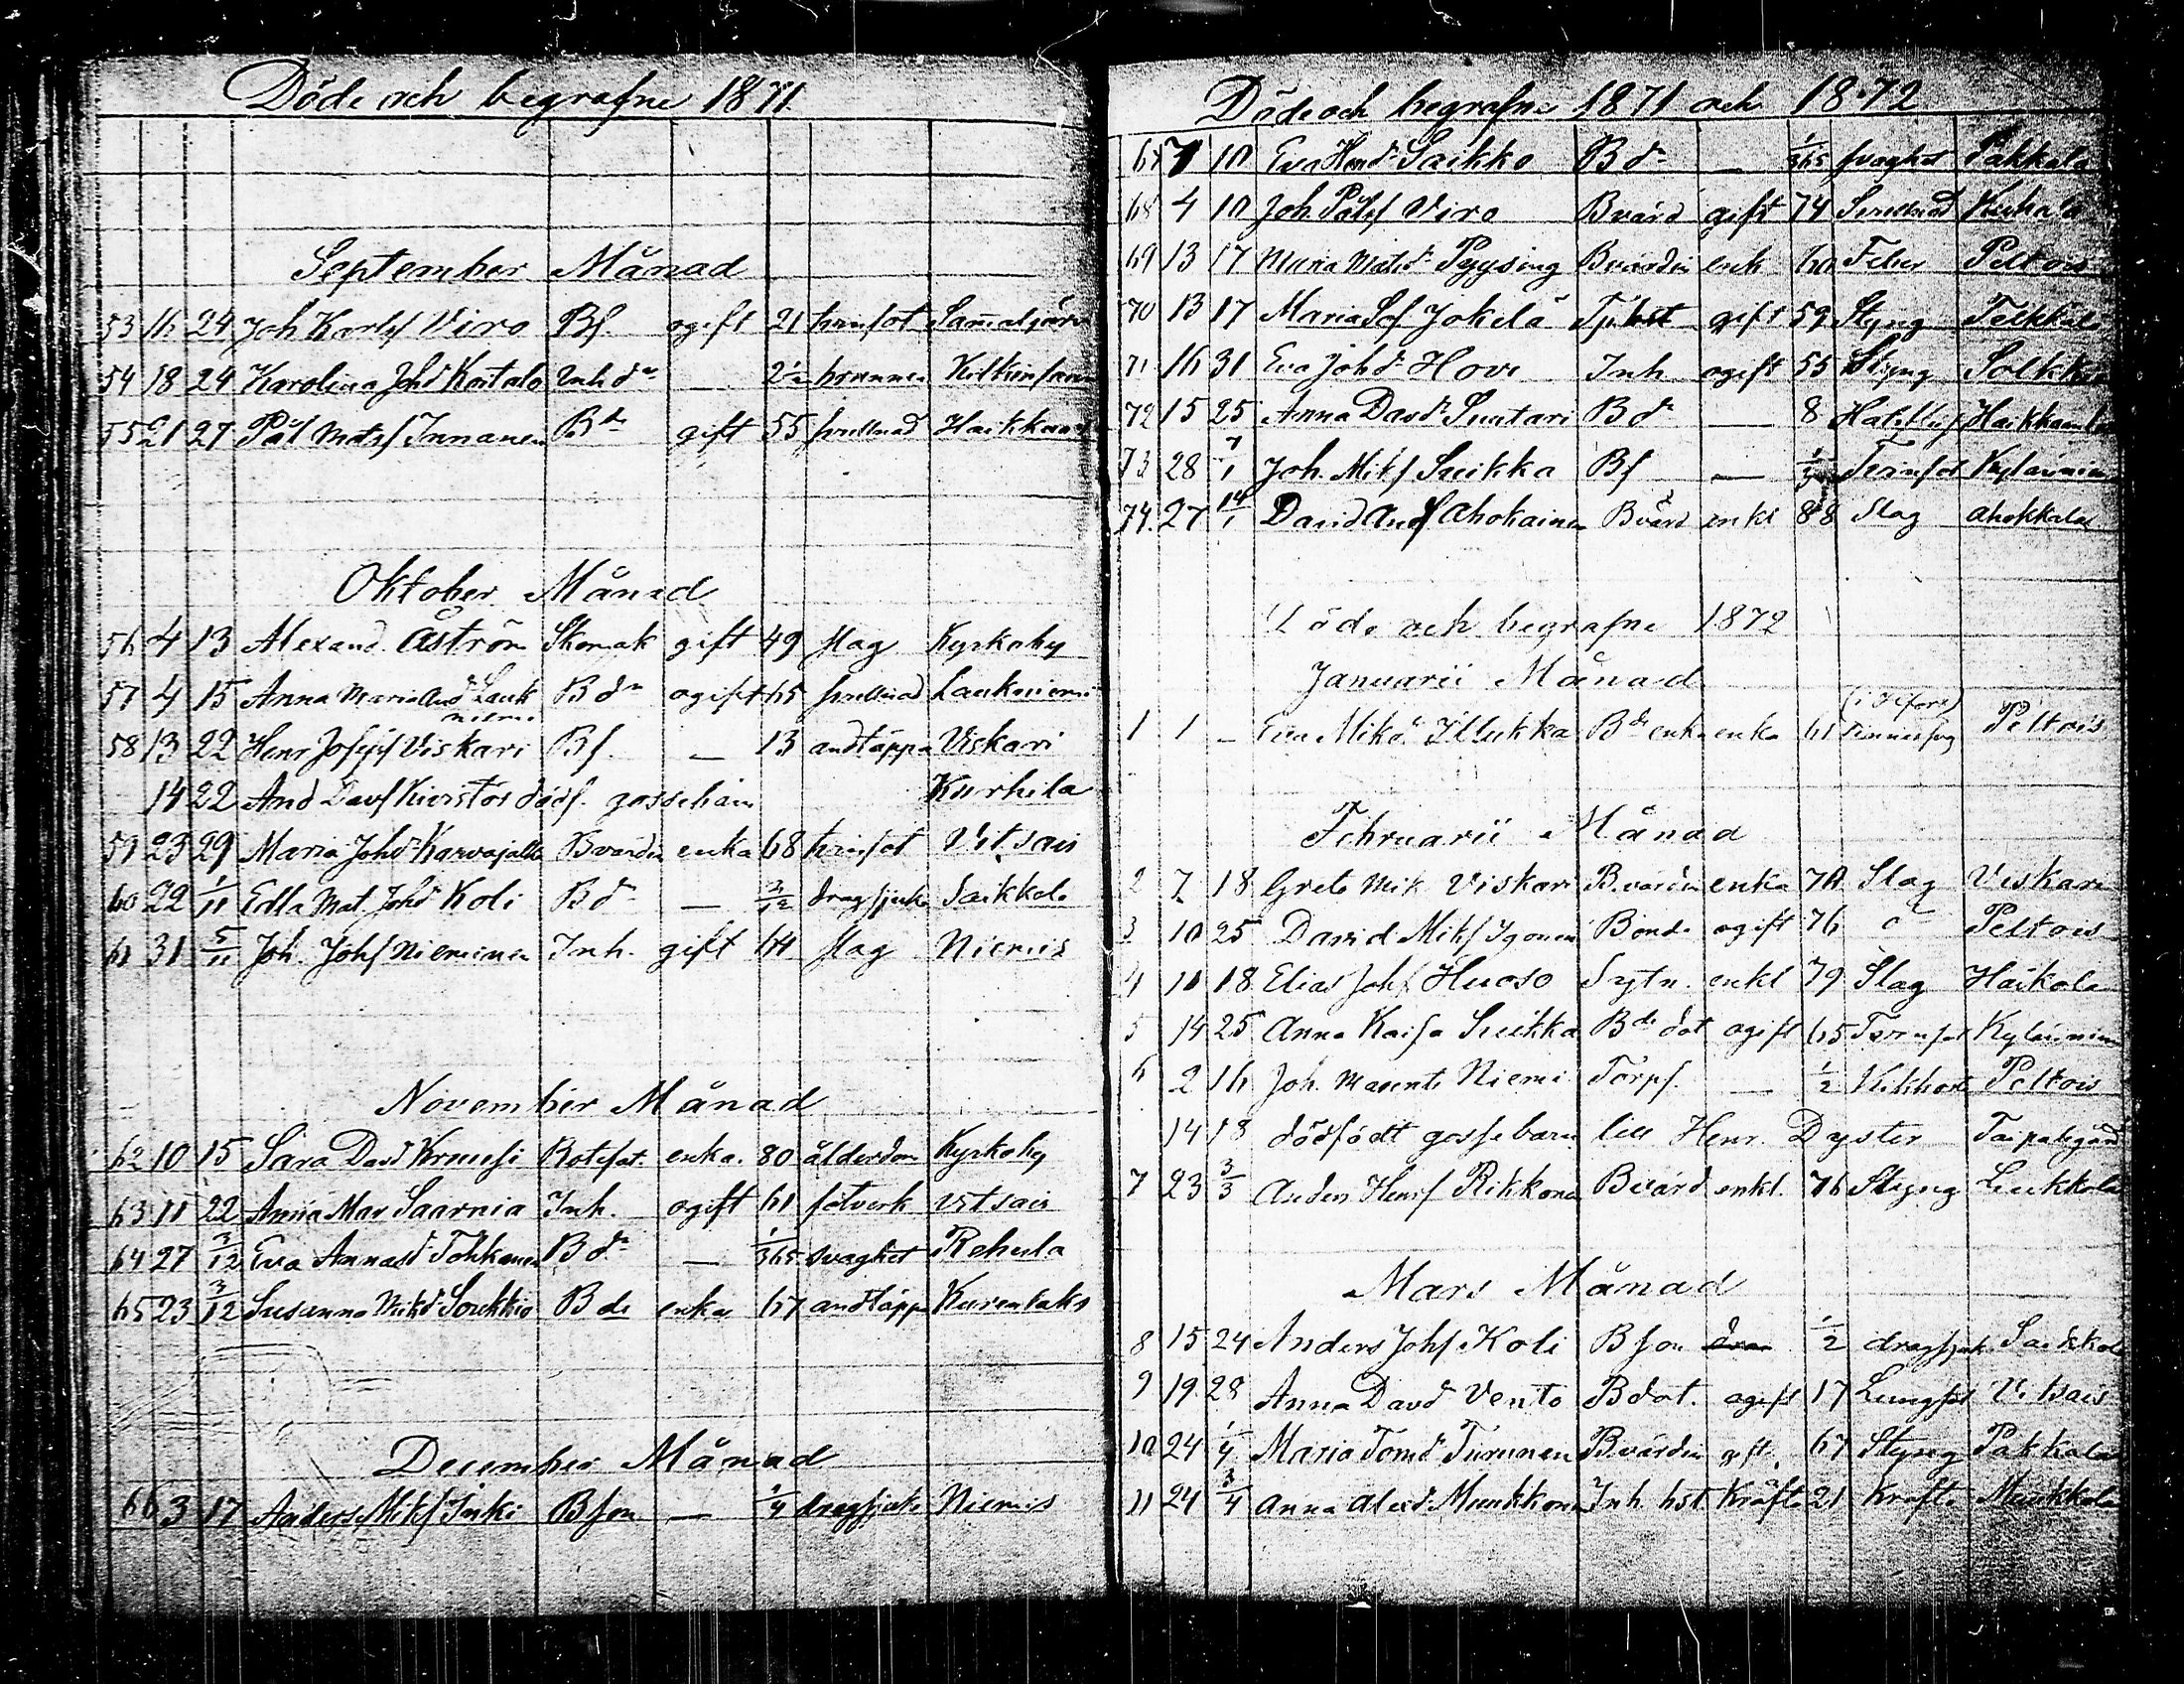 Döde och begrafne 1871.
September Månad
53 16 24 Joh Karlsf Viro Bf. ogift 21 Sammaljärv
54 18 24 Karolina Johd Kortalo Inh dr — 2½
55 21 27 Pål Matsf Innanen Bde gift 55
Oktober Månad
56 4 13 Alexand. Åström Skomak gift 49 slag Kyrkoby
57 4 15 Anna Maria And Lauk Bdr ogift 65 Laukniemi
niemi
58 13 22 Henr Josefsf Viskari Bf. — 13 andtäppa Viskari
14 22 And Davsf Kiristös dödf. gossebarn Kurhila
59 23 29 Maria Johdr Karvajalka Bvärdin enka 68 Vitsais
60 22 1/11 Edla Mat. Johd Koli Bdr — 2/12 dragsjuka Saikkola
61 31 5/11 Joh. Johsf Nieminen Inh. gift 64 slag Niemis
November Månad
62 10 15 Sara Davd Kruusi Rotefat. enka. 80 ålderdom Kyrkoby
63 11 22 Anna Mar Saarnia Inh. ogift 61 fotverk Vitsais
64 27 3/12 Eva Annasd Tohkanen Bdr — 1/365 svaghet Rehula
65 23 3/12 Susanna Mikd Soukkio Bde enka 67 andtäppa
December Månad
66 3 17 Anders Mikf Inki Bson — 1/4 dragsjuka Niemis
Döde och begrafne 1871 och 1872
67 7 10 Eva Hend Saikko Bdr — 1/365 svaghet Pakkala
68 4 10 Joh. Pålsf Viro Bvärd gift 74
69 13 17 Maria Matsdr Pyysing Bvärdin enk 60 Feber Peltois
70 13 17 Maria Sof Jokela gift 59 Styng
71 16 31 Eva Johdr Hovi Inh ogift 55 Styng
72 15 25 Anna Davdr Suntari Bdr — 8
73 28 7/1 Joh. Miksf Suikka Bf —
74. 27 14/1 David Andsf Ahokainen Bvärd enkl 88 Slag Ahokkala
Döde och begrafne 1872
Januarii Månad
1 1 — Eva Mikdr Illukka Bde enka enka 61 Peltois
Februarii Månad
2 7 18 Greta Mik Viskari B.värdin enka 70 Slag Viskari
3 10 25 David Miksf Igonen Bonde ogift 76 Peltois
4 10 18 Elias Johsf Huoso Sytn. enkl 79 Slag Haikola
5 14 25 Anna Kaisa Suikka Bde dot ogift 65
6 2 16 Joh. Niemi Torpf. — 1/2 Kikhosta Peltois
14 18 dödfödt gossebarn till Henr. Dyster
7 23 3/3 Anders Hensf Rikkonen Bvärd enkl. 76 Styng
Mars Månad
8 15 24 Anders Johsf Koli Bson 1/2 dragsjuk. Saikkola
9 19 28 Anna Davd Vento Bdot. ogift 17 Lungsot Vitsais
10 24 1/4 Maria Tomd Turunen Bvärdin gft. 67 Styng Pakkala
11 24 3/4 Anna Alexd Muukkonen Inh. hst Kräfta 21 Kräfta Muukkola